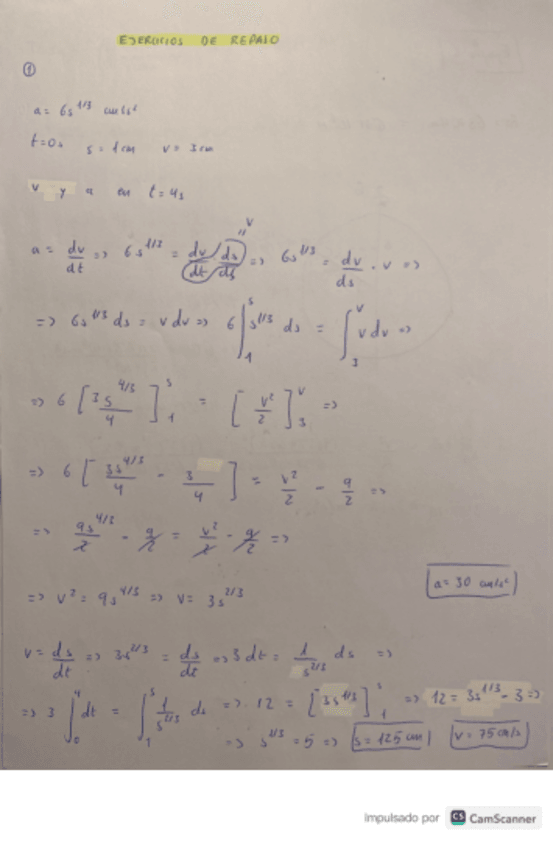 EJERCICIOS DE REPASO
①
a = 6s^1/3 cm/s²
t=0s s = 1cm v = 3cm
v y a en t = 4s
a = dv/dt => 6s^1/3 = dv/dt · ds/ds => 6s^1/3 = dv/ds · v =>
"v
=> 6s^1/3 ds = v dv => 6 ∫₁^s s^1/3 ds = ∫₃^v v dv =>
=> 6 [3s^4/3 / 4]₁^s = [v²/2]₃^v =>
=> 6 [3s^4/3 / 4 - 3/4] = v²/2 - 9/2 =>
=> 9s^4/3 / 2 - 9/2 = v²/2 - 9/2 =>
=> v² = 9s^4/3 => v = 3s^2/3
a = 30 cm/s²
v = ds/dt => 3s^2/3 = ds/dt => 3 dt = 1/s^2/3 ds =>
=> 3 ∫₀^4 dt = ∫₁^s 1/s^2/3 ds => 12 = [3s^1/3]₁^s => 12 = 3s^1/3 - 3 =>
=> s^1/3 = 5 => s = 125 cm v = 75 cm/s
Impulsado por CS CamScanner